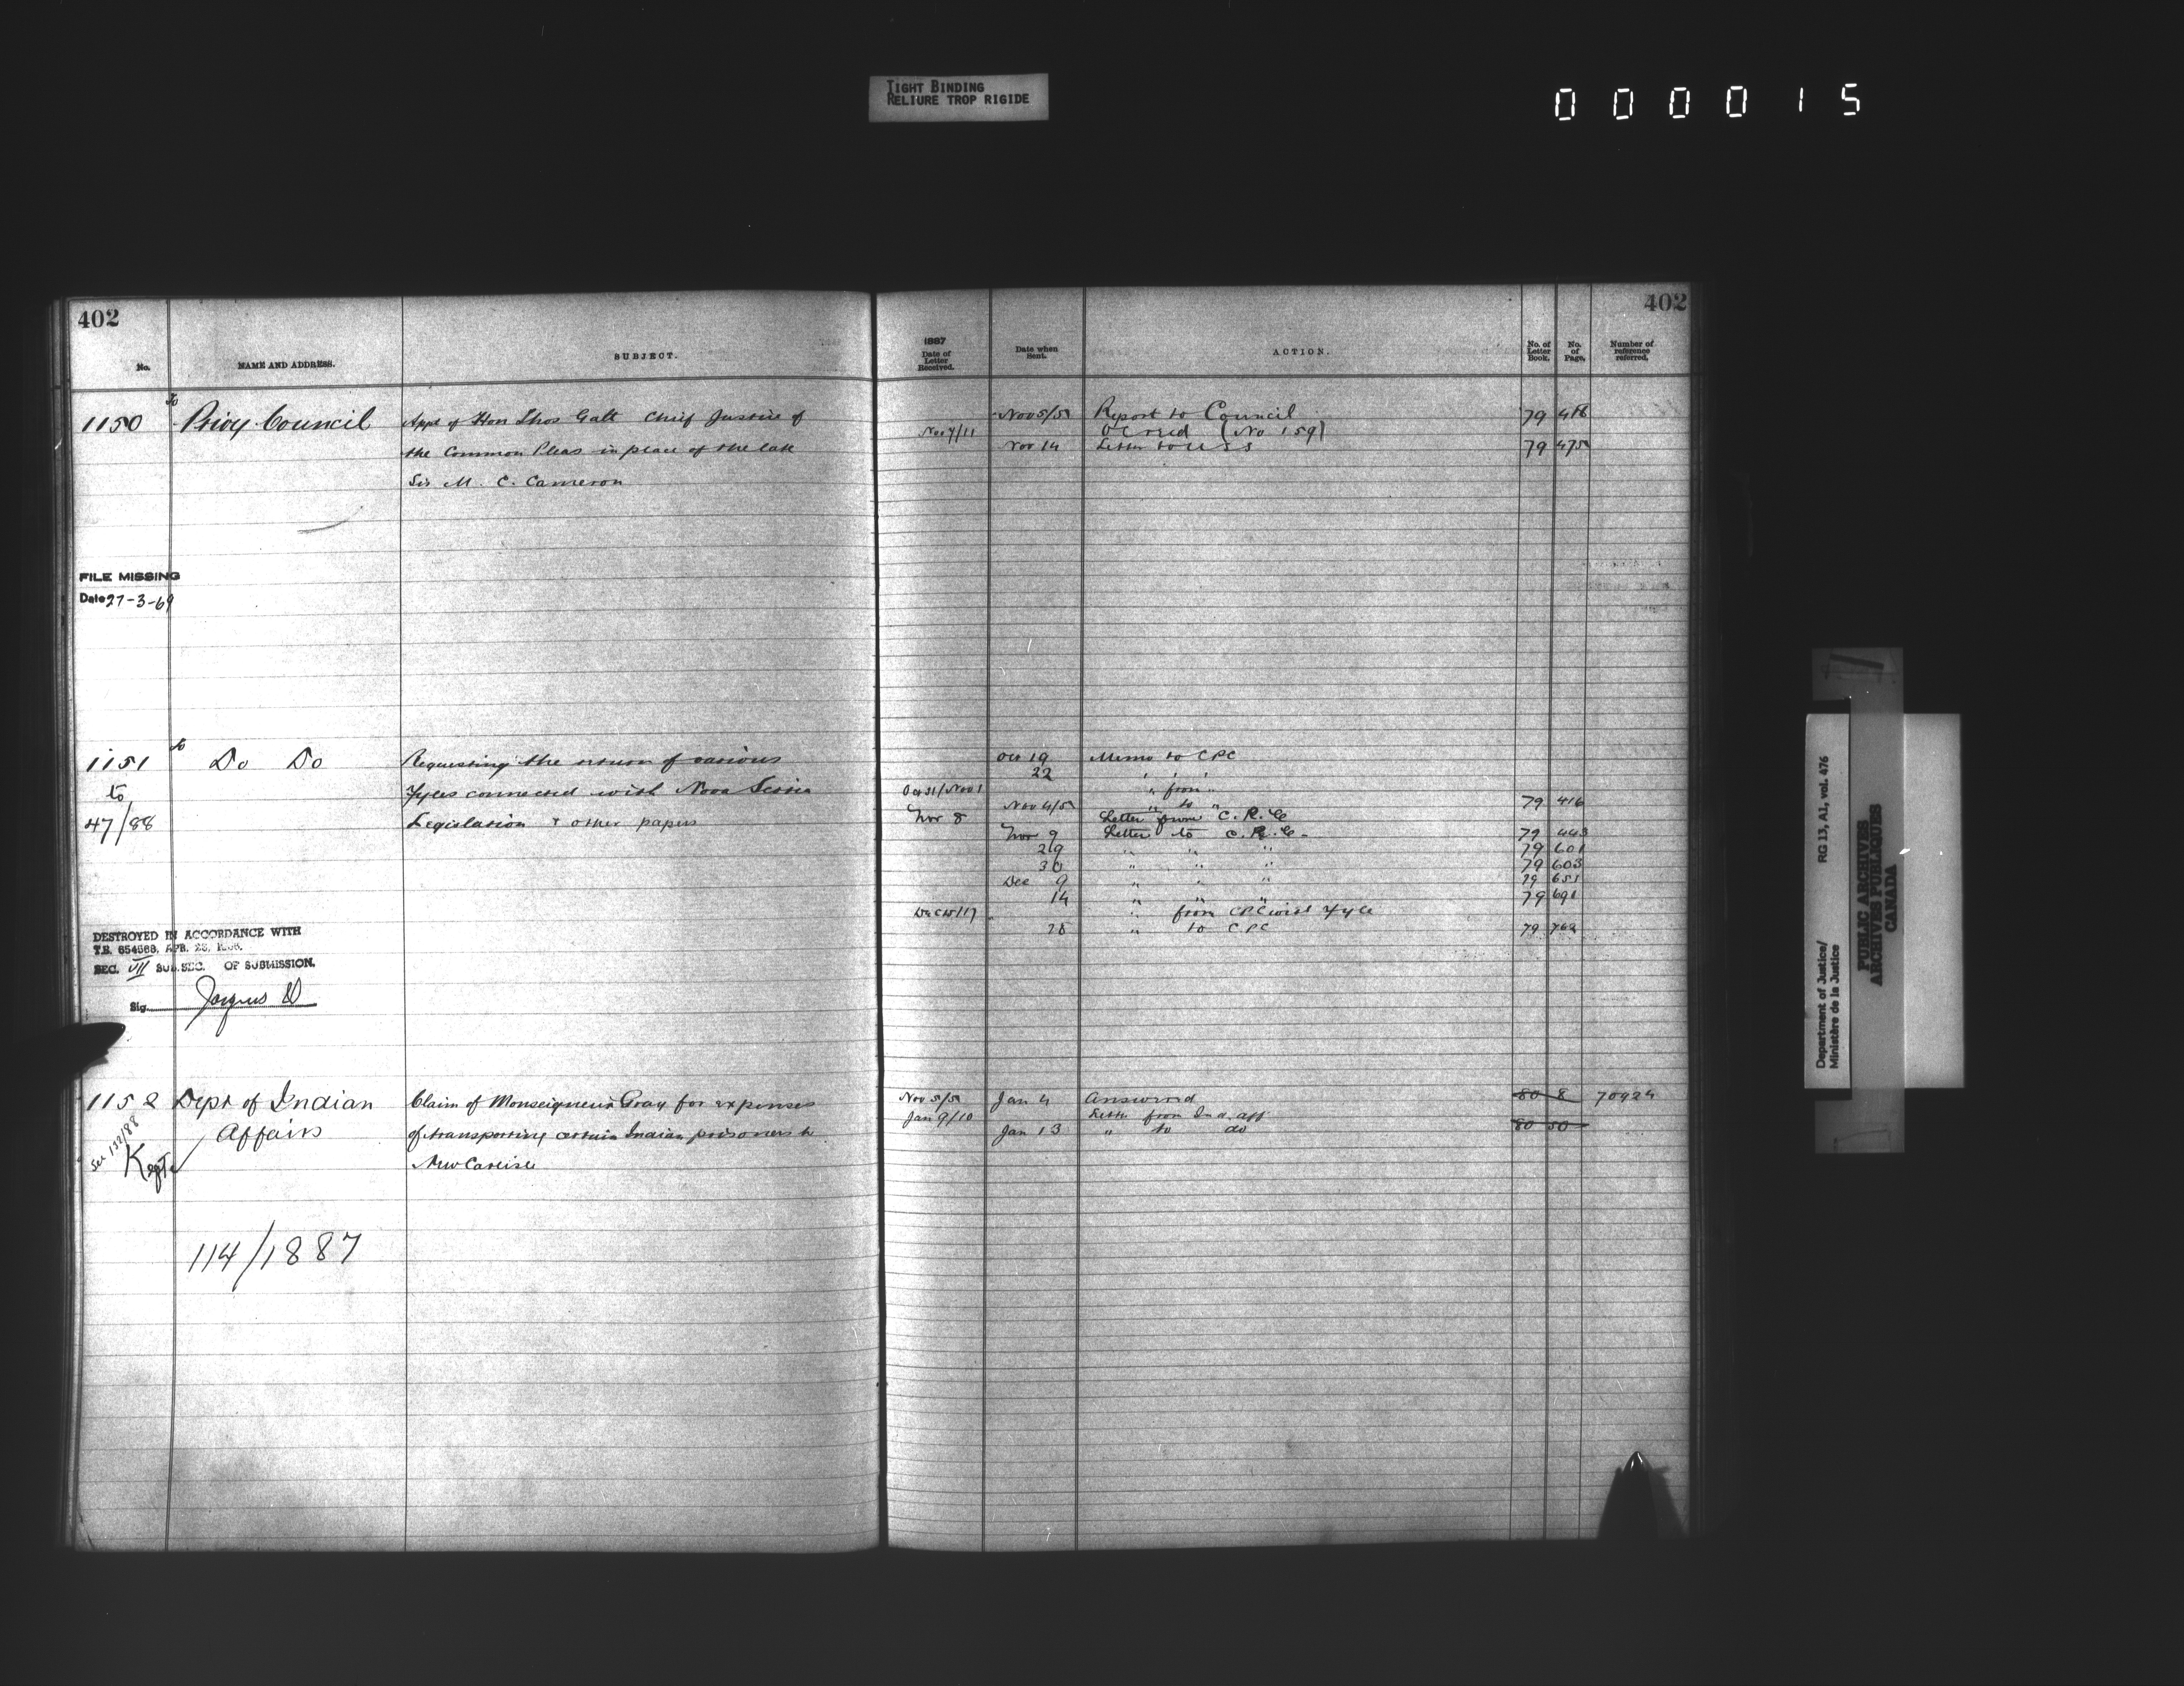 TIGHT BINDING
RELIURE TROP RIGIDE
0 0 0 0 1 5
402
No.
NAME AND ADDRESS.
SUBJECT.
1150
To
Privy Council
Appt of Hon Thos Galt Chief Justice of
the Common Pleas in place of the late
Sir M. C. Cameron
FILE MISSING
Date 27-3-69
1151
to
47/88
To
Do Do
Requesting the return of various
Fyles connected with Nova Scotia
Legislation & other papers
DESTROYED IN ACCORDANCE WITH
T.B. 654688, APR. 28,
SEC. VII SUB.SEC. OF SUBMISSION.
Sig.
1152
See 132/88
Kept
Dept of Indian
Affairs
Claim of Monseigneur Gray for expenses
of transporting certain Indian prisoners to
New Carlisle
114/1887
402
1887
Date of
Letter
Received.
Date when
Sent.
ACTION.
No. of
Letter
Book.
No.
of
Page.
Number of
reference
referred.
Nov 5/5 Report to Council 79 418
Nov 7/11 (No 159)
Nov 14 Letter to U S S 79 475
Oct 19 Memo to CPC
22 " " "
Oct 31/Nov 1 " from "
Nov 4/5 " to " 79 416
Nov 8 Letter from C. P. C
Nov 9 Letter to C. P. C - 79 443
29 " " " 79 601
30 " " " 79 603
Dec 9 " " " 79 651
14 " " " 79 691
Dec 15/17 " from CPC with Fyle
28 " to CPC 79
Nov 5/5 Jan 4 Answered 80 8 70924
Jan 9/10 Letter from Ind. Aff
Jan 13 " to do 80 50
Department of Justice/
Ministère de la Justice
RG 13, A1, vol. 476
PUBLIC ARCHIVES
ARCHIVES PUBLIQUES
CANADA